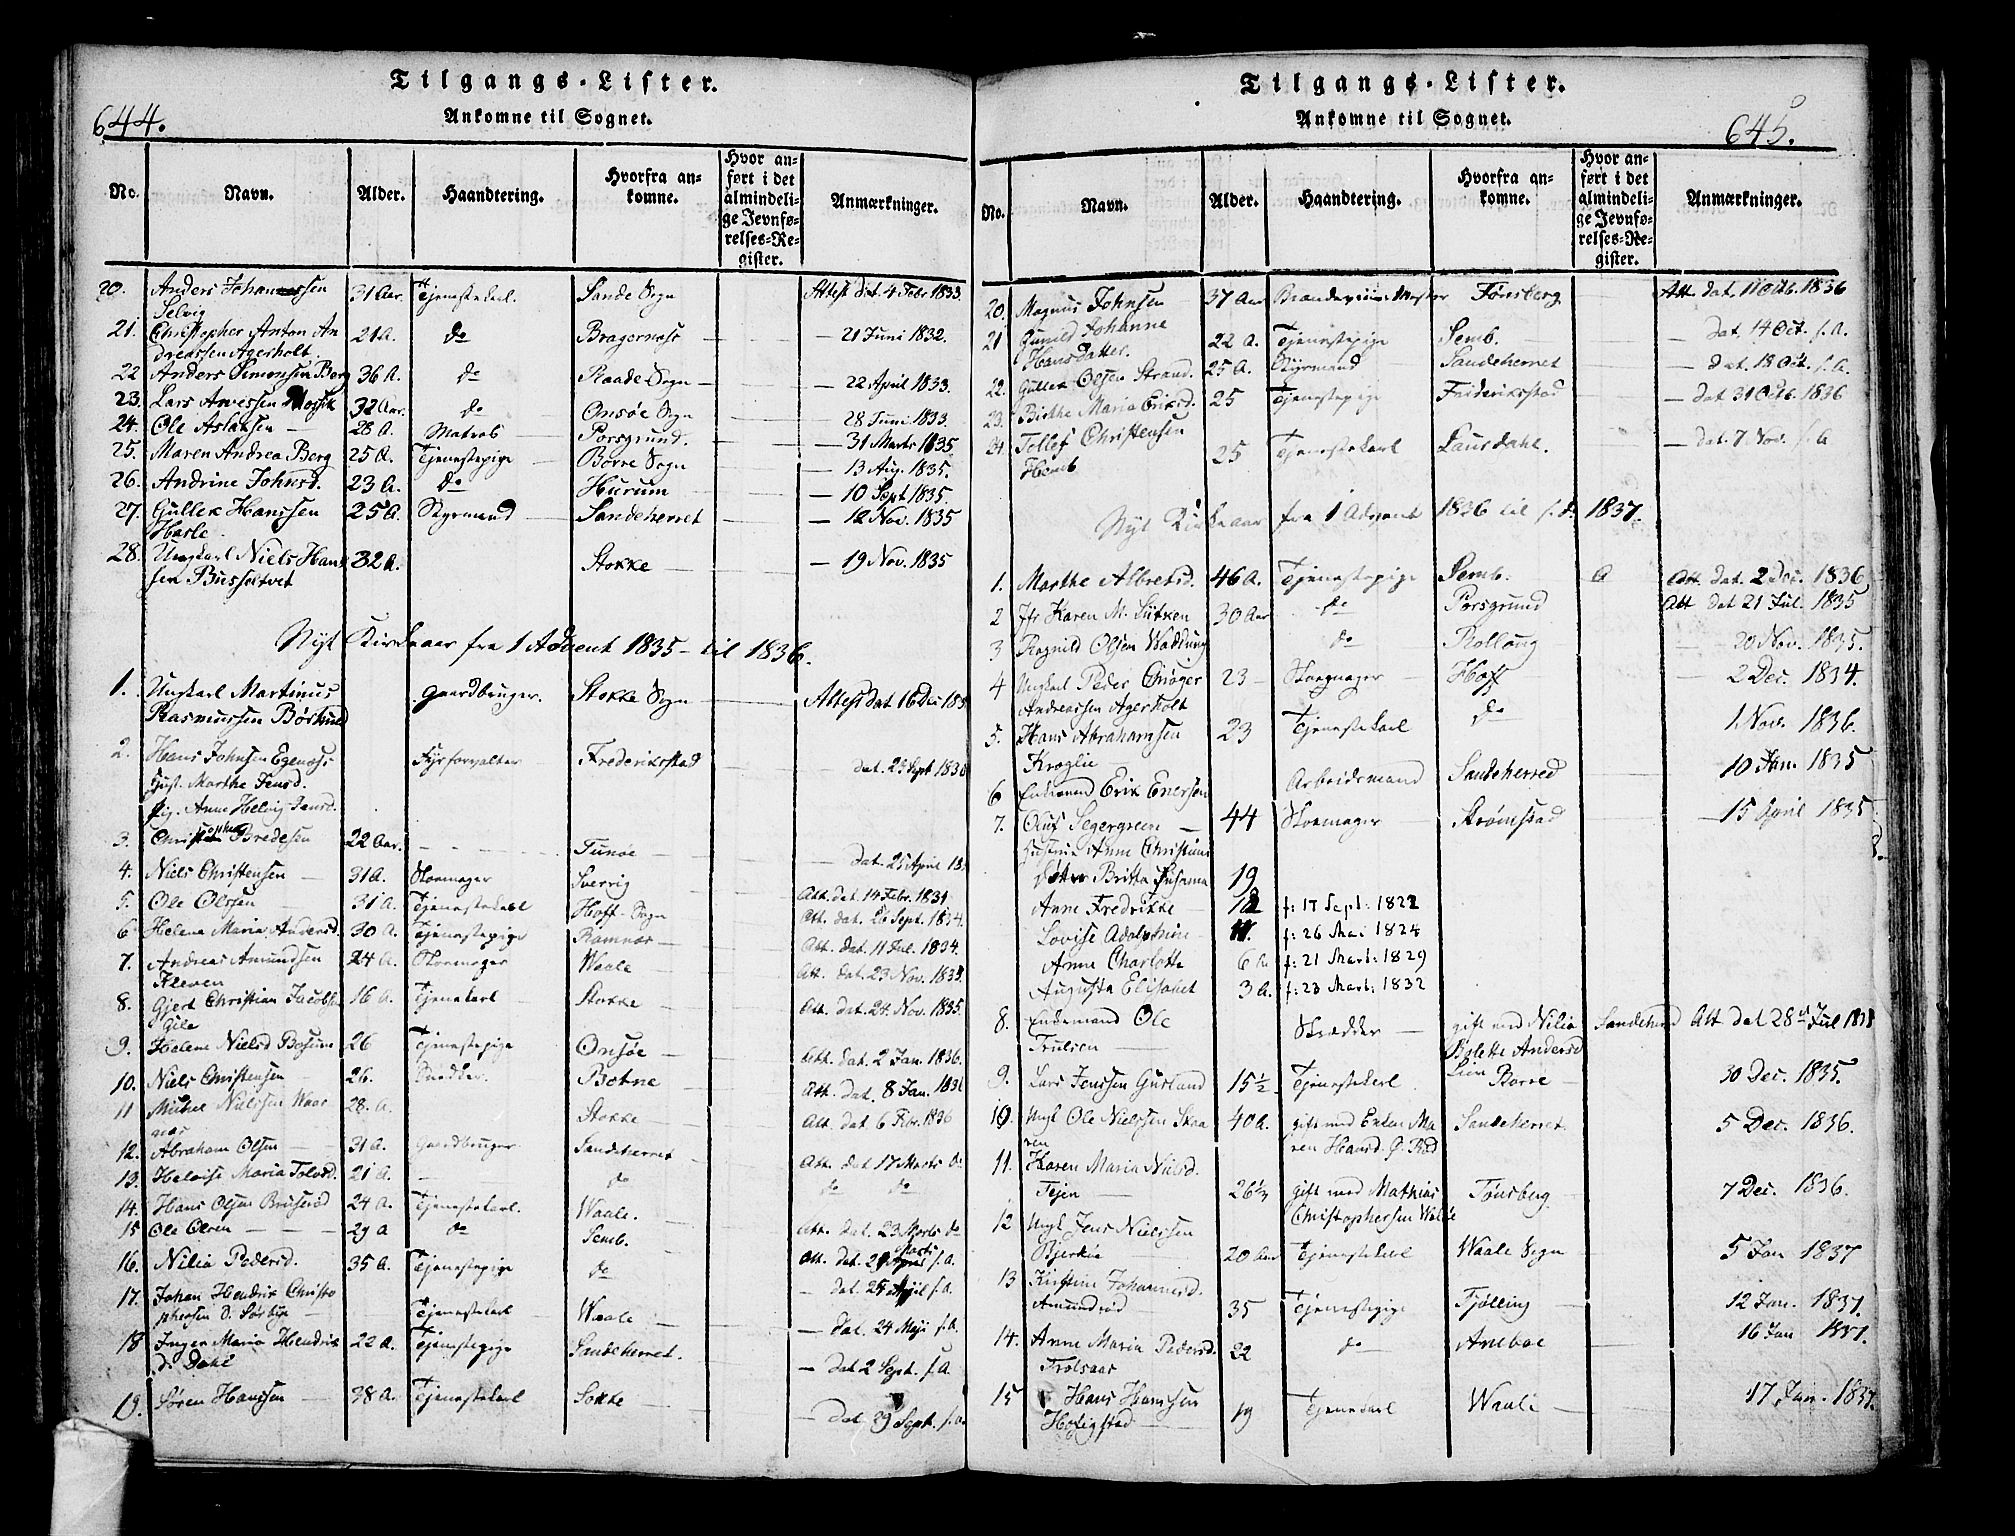 644.
Tilgangs-Lister.
Ankomne til Sognet.
No. Navn. Alder. Haandtering. Hvorfra ankomne. Hvor anført i det almindelige Jevnførelses-Register. Anmærkninger.
20. Anders Johannessen Selvig 31 Aar. Tjenestekarl. Sande Sogn Attest dat. 4 Febr 1833.
21. Christopher Anton Andreassen Agerholt. 21 A. do Bragernæss — 21 Juni 1832.
22 Anders Simonsen Berg 36 A. do Raade Sogn — 22 April 1833.
23. Lars Arvessen 32 Aar. do Onsøe Sogn 28 Juni 1833.
24. Ole Aslaksen 28 A. Matros Porsgrund. — 31 Marts 1835
25. Maren Andrea Berg 25 A. Tjenestepige Borre Sogn — 13 Aug. 1835.
26. Andrine Johnsd. 23 A. do Hurum — 10 Sept 1835.
27. Gullek Hanssen Hasle 25 A. Styrmand Sandeherret — 12 Nov. 1835
28. Ungkarl Niels Hanssen 32 A. Stokke — 19 Nov. 1835
Nyt Kirkeaar fra 1 Advent 1835 — til 1836.
1. Ungkarl Martinus Rasmussen gaardbruger. Stokke Sogn Attest dat 16 Dec
2. Hans Johnsen Egenæss Hust. Marthe Jensd. pig. Anne Helvig Fyrforvalter Frederiksstad dat. 23 Sept
3. Christopher Bredesen 22 Aar. Tunøe — dat. 25 April
4. Niels Christensen 31 A. Skomager Sverrig Att. dat. 14 Febr. 1831
5. Ole Olssen 31 A. Tjenestekarl Hoff Sogn Att. dat. Sept. 1834.
6 Helene Maria Andersd. 30 A. Tjenestepige Ramnæs Att. dat. 11 Jul. 1834.
7. Andreas Amundsen Kleven 24 A. Skomager Waale Att. dat. 23 Nov.
8. Gjert Christian Jacobs. 16 A. Tjenekarl Stokke Att. dat. 24. Nov. 1835.
9. Helene Nielsd 26 Tjenestepige Onsøe Att. dat. 2 Jan. 1836.
10. Niels Christensen 26. Botne Att. dat. 8 Jan.
11 Michel Nielssen 28. A. Stokke Att. dat 6 Febr. 1836
12. Abraham Olsen 31 A. Gaardbruger Sandeherret Att. dat 17 Marts do
13. Heloise Maria 21 A. do do do
14. Hans Olsen 24 A. Tjenestekarl. Waale. Att. dat. 23 Marts do
15 Ole Olsen 29 A do Semb. Att. dat. Marts s. A.
16. Nilia Pedersd. 35 A. Tjenestepige do — dat. 25 April s. A.
17. Johan Hendrik Christophersen Tjenestekarl Waale — dat. 24 Maji s. A.
18 Inger Maria Hendrikd. Dahl 22 A. Tjenestepige Sandeherret. — dat 2 Sept. s. A.
19. Søren Hanssen 38 A. Tjenestekarl — dat 29 Sept. s. A.
645.
Tilgangs-Lister.
Ankomne til Sognet.
No. Navn. Alder. Haandtering. Hvorfra ankomne. Hvor anført i det almindelige Jevnførelses-Register. Anmærkninger.
20. Magnus Johnsen 37 Aar Tønsberg Att. dat. 1836
21 Gunild Johanne Hansdatter. 22 A. Tjenestepige Semb. — dat. 14 Oct. s. A.
22. Gullek Olsen Strand. 25 A. Styrmand Sandeherret — dat. 18 Oct. s. A.
23. Birthe Maria Eriksd. 25 Tjenestepige Frideriksstad — dat 21 Octb. 1836
24. Tollef Christensen Hemb 25 Tjenestekarl Laurdahl. — dat. 7 Nov. s. A
Nyt Kirkeaar fra 1 Advent 1836 til s. T. 1837.
1. Marthe Albretsd. 46 A. Tjenestepige Semb. A Att. dat. 2 Dec. 1836
2 Jfr Karen M. 30 Aar do Porsgrund Att dat 21 Jul. 1835
3 Ragnild Olsen do Rollaug — 20 Nov. 1835.
4 Ungkarl Peder Andreassen Agerholt 23 Skomager Hoff — 2 Dec. 1834.
5. Hans Abrahamsen Kroglie 23 Tjenestekarl do 1 Nov. 1836.
6 Enkemand Erik Enersen Arbeidsmand Sandeherred 10 Jan. 1835
7. Oluf Segergreen 44 Skomager Strømstad 15 April 1835
Hustrue Anne Christine
Britta Susanna 19
Anne Fredrikke 12 f: 17 Sept: 1822
Lovise Adolphine 11. f: 26 Mai 1824
Anne Charlotte 6 A. f: 21 Mart: 1829
Augusta Elisabet 3 A. f: 23 Mart: 1832
8. Enkemand Ole Trulsen Skrædder gift med Nilia Bolette Andersd Sandeherred Att dat 28 Jul
9. Lars Jenssen 15½ Tjenestekarl Borre 30 Dec. 1835.
10. Ungk Ole Nielssen 40 A. gift med Enken Maren Hansd. Sandeherret. 5 Dec. 1836.
11. Karen Maria Nielsd. 26 gift med Mathias Christophersen Tønsberg 7 Dec. 1836.
12 Ungk Jens Nielssen Bjerkøe 20 Aar Tjenestekarl Waale Sogn 5 Jan 1837
13 Kirstine Johannesd. Amundrød 35 Tjenestepige Tjølling 12 Jan. 1837.
14. Anne Maria Pedersd. 22 do 16 Jan 1837.
15 Hans Hanssen 19 Tjenekarl Waale 17 Jan. 1837.